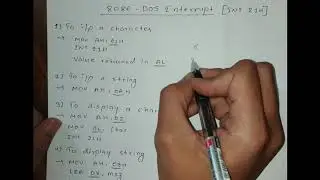 8086 - DOS Interrupt [INT 21H]
1) To i/p a character
→ MOV AH, 01H
INT 21H
Value returned in AL
2) To i/p a string
→ MOV AH, 0AH
3) To display a cha
→ MOV AH, 02
MOV DL, Char
INT 21H
4) To display string
→ MOV AH, 09H
LEA DX, msg